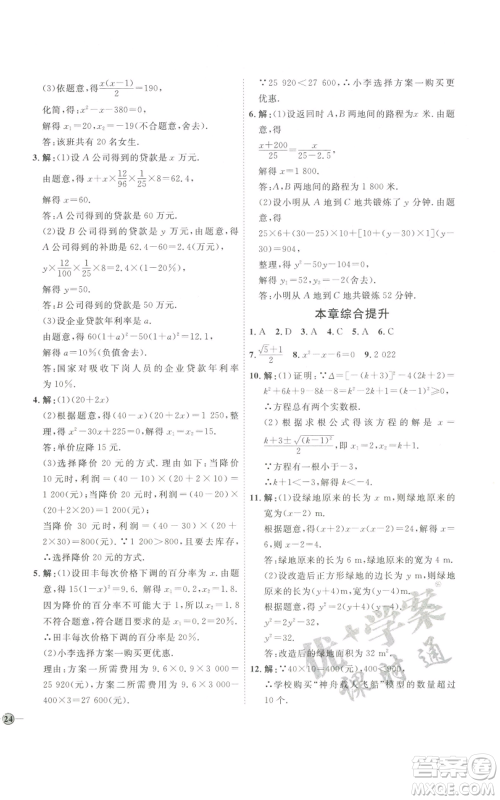 (3)依题意，得x(x-1)/2=190，
化简，得x²-x-380=0，
解得x₁=20，x₂=-19(不合题意，舍去)，
答：该班共有20名女生.
3. 解：(1)设A公司得到的贷款是x万元.
由题意，得x+x×12/96×1/25×8=62.4，
解得x=60.
答：A公司得到的贷款为60万元.
(2)设B公司得到的贷款是y万元，由题意，
得A公司得到的补助是62.4-60=2.4(万元)，
y×12/100×1/25×5=2.4，
解得y=50.
答：B公司得到的贷款为50万元.
(3)设企业贷款年利率是a.
由题意，得60(1+a)²-50(1+a)²=12.1，
解得a=10%(负值舍去).
答：国家对吸收下岗人员的企业贷款年利率为10%.
4. 解：(1)(20+2x)
(2)根据题意，得(40-x)(20+2x)=1 250，
整理，得x²-30x+225=0，解得x₁=x₂=15.
答：单价应降15元.
(3)选择降价20元的方式.理由如下：
当降价10元时，利润=(40-10)×(20+20)=
1 200(元)；当降价20元时，利润=(40-20)×
(20+40)=1 200(元)；
当降价30元时，利润=(40-30)×(20+
2×30)=800(元).∵1 200>800，
∴选择降价20元的方式.
5. 解：(1)设田丰每次价格下调的百分率为x.由题
意，得15(1-x)²=9.6.解得x₁=0.2，x₂=1.8.
因为降价的百分率不可能大于1，所以x₂=1.8
不符合题意，符合题目要求的是x₁=0.2=20%.
∴田丰每次价格下调的百分率是20%.
(2)小李选择方案一购买更优惠.
理由：方案一所需费用为9.6×0.9×3 000=
25 920(元)，方案二所需费用为9.6×3 000-
400×3=27 600(元).
∵25 920<27 600，∴小李选择方案一购买更
优惠.
6. 解：(1)设返回时A，B两地间的路程为x米.由题
意，得
(x+200)/25=x/(25-2.5)，
解得x=1 800.
答：A，B两地间的路程为1 800米.
(2)设小明从A地到C地共锻炼了y分钟.由题
意，得
25×6+5×10+[10+(y-30)×1](y-
30)=904，
整理，得y²-50y-104=0，
解得y=52.
答：小明从A地到C地共锻炼52分钟.
本章综合提升
1. A 2. D 3. A 4. D 5. A 6. C
7. (√5+1)/2 8. x²-x-6=0 9. 2 022
10. 解：(1)证明：∵Δ=[-(k+3)]²-4(2k+2)=
k²+6k+9-8k-8=k²-2k+1=(k-1)²≥0，
∴方程总有两个实数根.
(2)根据求根公式得该方程的解是x=
(k+3±√(k-1)²)/2，即x₁=k+1，x₂=2.
∵方程有一个根小于1，
∴k+1<1，解得k<0.
11. 解：(1)设绿地原来的长为x m，则绿地原来的
宽为(x-2)m.
根据题意，得x(x-2)=24，解得x₁=6，
答：绿地原来的长为6 m，宽为4 m.
根据题意，得y²=(6-y)(4+y)，
整理，得y²-y-12=0.
答：改造后的绿地面积为32 m².
12. 解：∵40×10=400(元)，
∴学校购买“神舟载人飞船”模型的数量超过
10个.
24
优+学案
课时通
答案圈
MXQE.COM